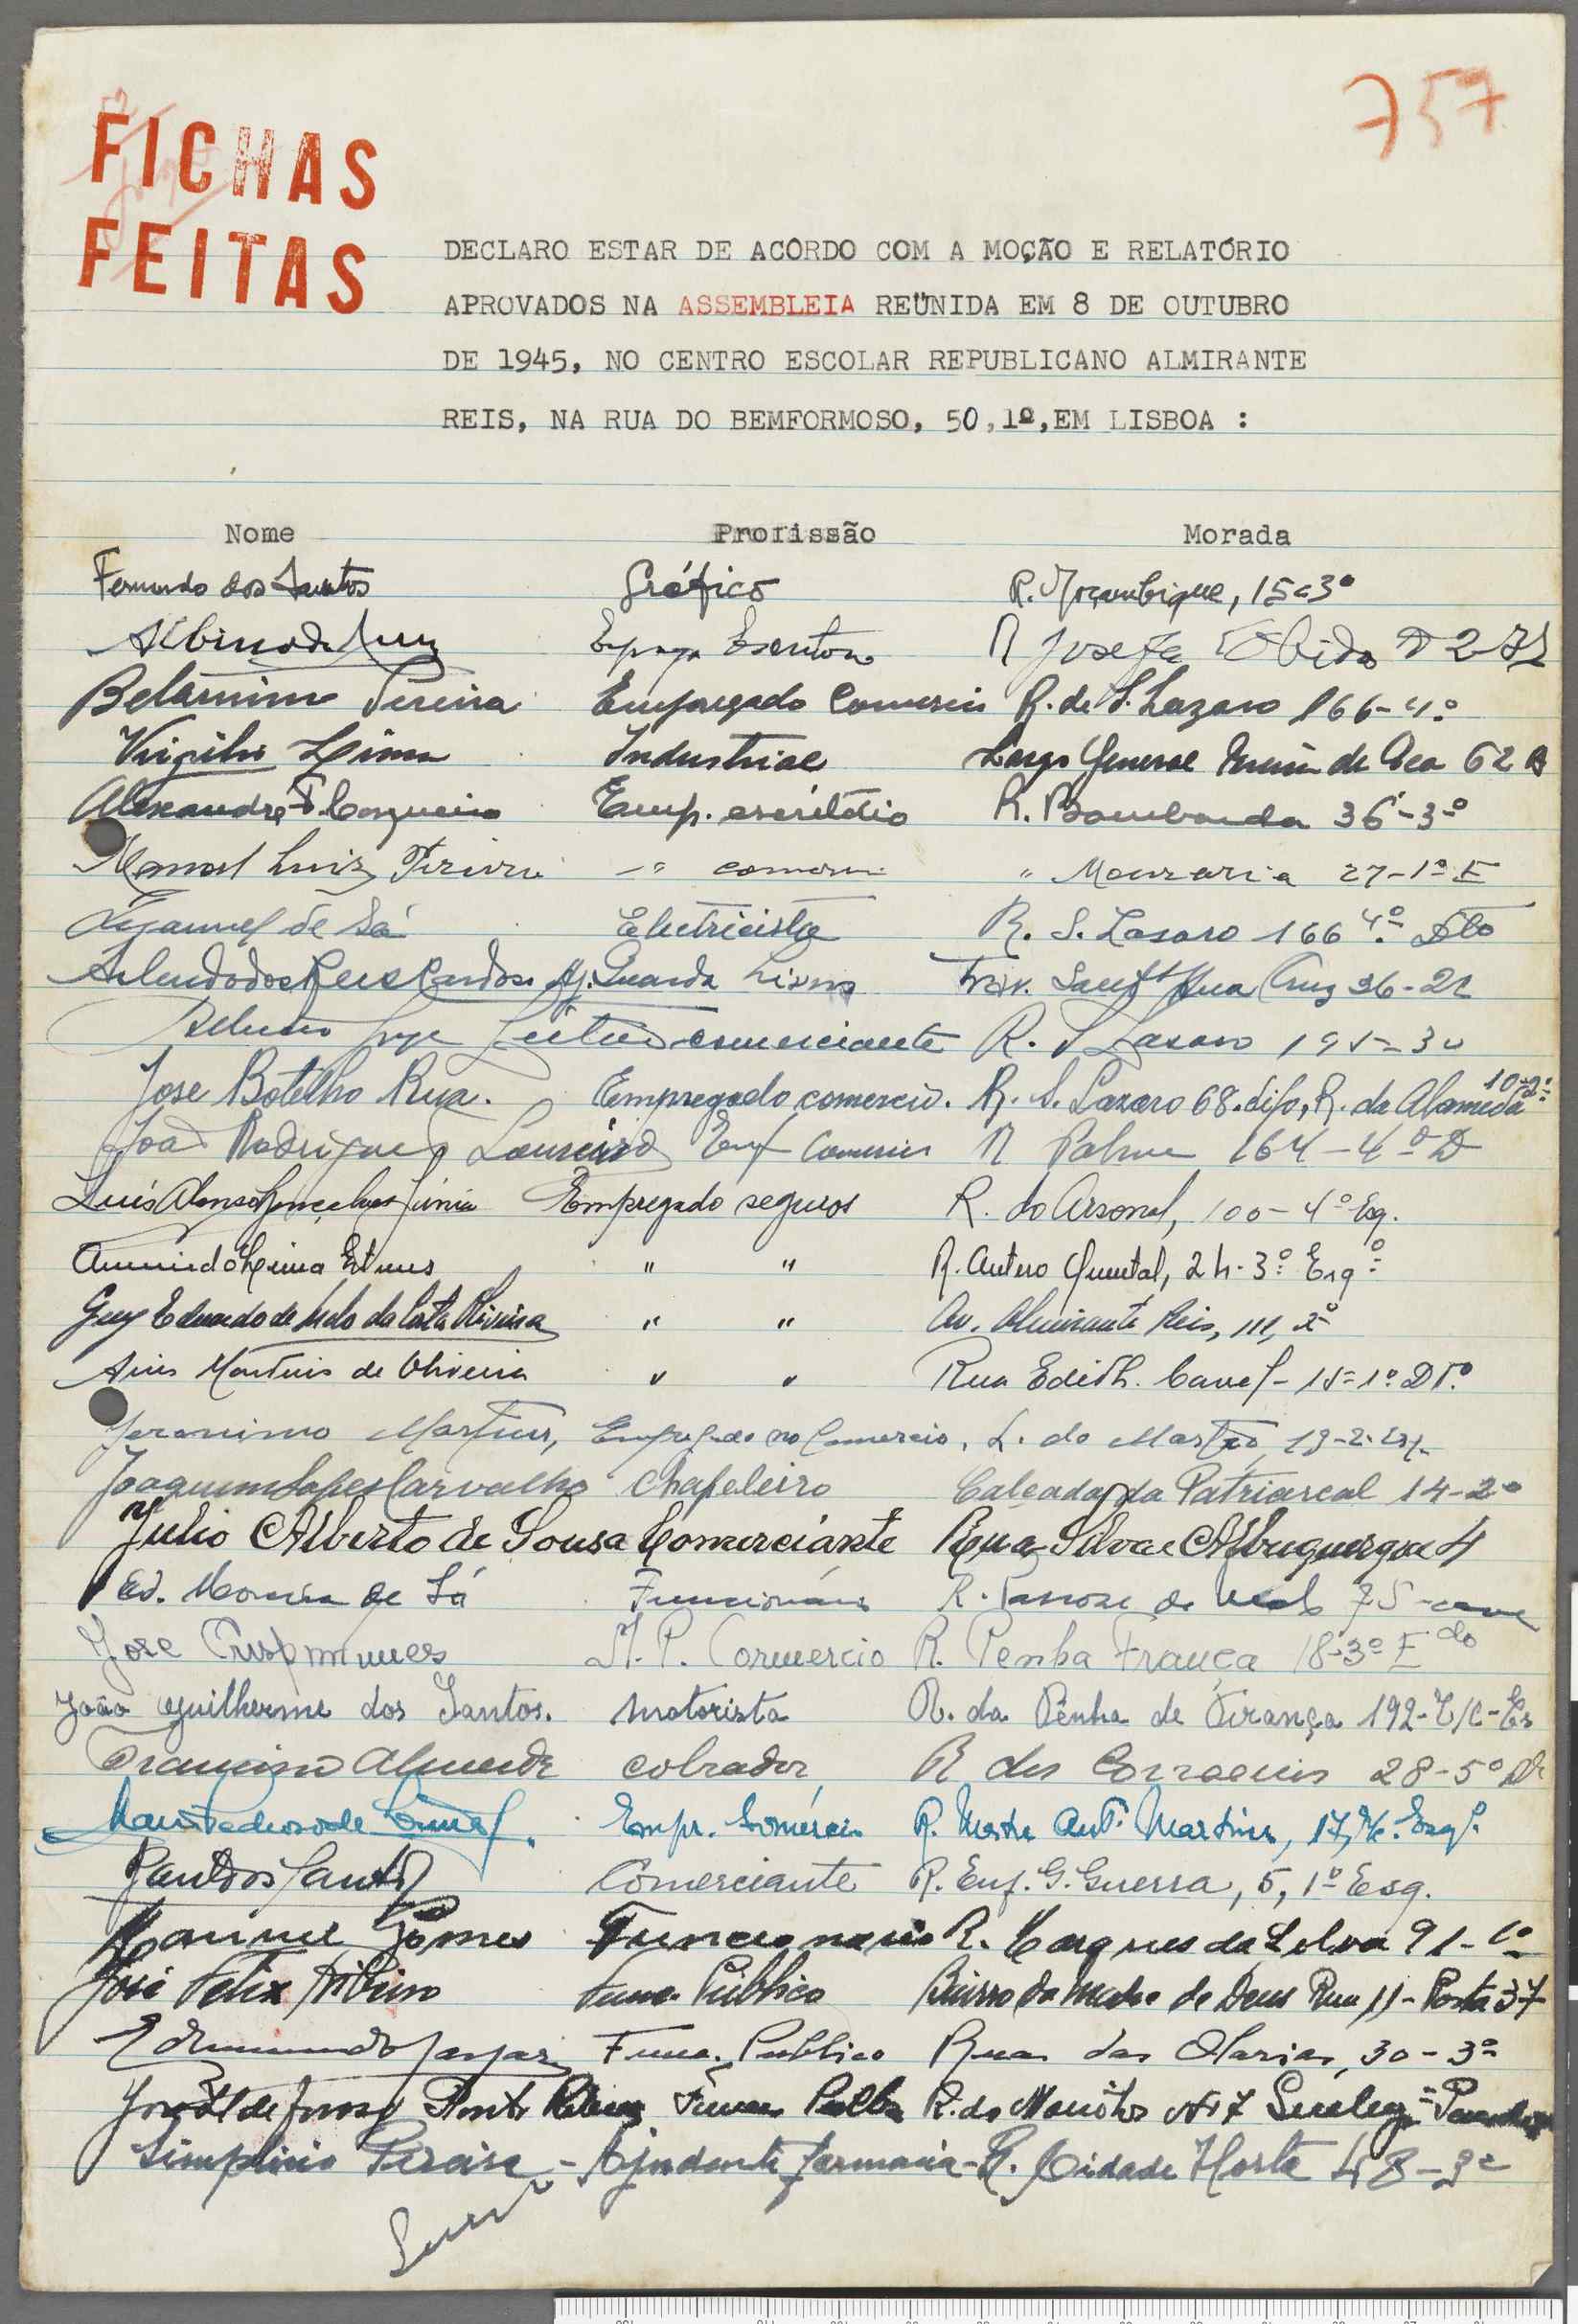 757
FICHAS
FEITAS
DECLARO ESTAR DE ACÔRDO COM A MOÇÃO E RELATÓRIO
APROVADOS NA ASSEMBLEIA REÜNIDA EM 8 DE OUTUBRO
DE 1945, NO CENTRO ESCOLAR REPUBLICANO ALMIRANTE
REIS, NA RUA DO BEMFORMOSO, 50,1º,EM LISBOA :
Nome Profissão Morada
Fernando dos Santos Gráfico R. Moçambique, 15 3º
Albino da Luz R Josefa Obidos
Belarmino Pereira Empregado Comercio R. de S. Lazaro 166-4º
Virgilio Lima Industrial Largo General 62 B
Alexandre F. Emp. escritório R. Bombarda 36-3º
Manoel Luiz Pereira " comercio " Mouraria 27-1º E
Manuel de Sá Electricista R. S. Lasaro 166 4º Dto
Arlindo dos Reis Cardoso Aj. Guarda Livros Trav. Cruz 36-2
Jorge Leitão comerciante R. S Lazaro 195-3º
Jose Botelho Rua. Empregado comercio. R. S. Lazaro 68. difo, R. da Alameda 10-2º
João Rodrigues Loureiro Emp Comercio R Palma 164-4º D
Luís Afonso Gonçalves Júnior Empregado seguros R. do Arsenal, 100-4º Esq.
Armindo Lima " " R. Antero Quental, 24-3º Esqº
Guy Eduardo de Melo da Costa " " Av. Almirante Reis, 111, 2º
Aires Martins de Oliveira " " Rua Edith Cavel-15-1º DTº
Jeronimo Martins, Empregado no Comercio, L. do Mastro, 19-2-Esq.
Joaquim Lopes Carvalho Chapeleiro Calçada da Patriarcal 14-2º
Julio Alberto de Sousa Comerciante Rua Silva e Albuquerque 4
Ed. Moreira de Sá Funcionário R. 75-cave
Jose Comercio R. Penha França 18-3º E do
João Guilherme dos Santos. Motorista R. da Penha de França 192-r/c-Es
Francisco Almeida cobrador R dos Correeiros 28-5º Dt
Empr. Comércio R. Mestre Antº Martins, 17, r/c. Esqº.
Raul dos Santos Comerciante R. Enf. G. Guerra, 5, 1º Esq.
Manuel Gomes Funcionario R. Marques da Silva 91-1º
José Felix Ribeiro Func. Publico Bairro da Madre de Deus Rua 11-Porta 37
Edmundo Gaspar Func. Publico Rua das Olarias, 30-3º
José Ribeiro
Simplicio Pereira - Ajudante farmacia - R. Cidade Horta 48-3º